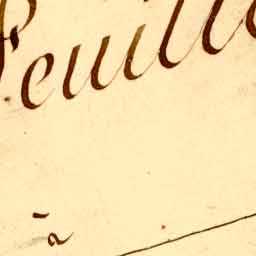 Feuille
à